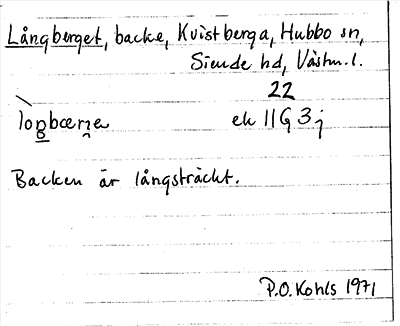 Långberget, backe, Kvistberga, Hubbo sn,
Siende hd, Västm. l.
22
loŋbærɲe ek 11G 3j
Backen är långsträckt.
P.O. Kohls 1971